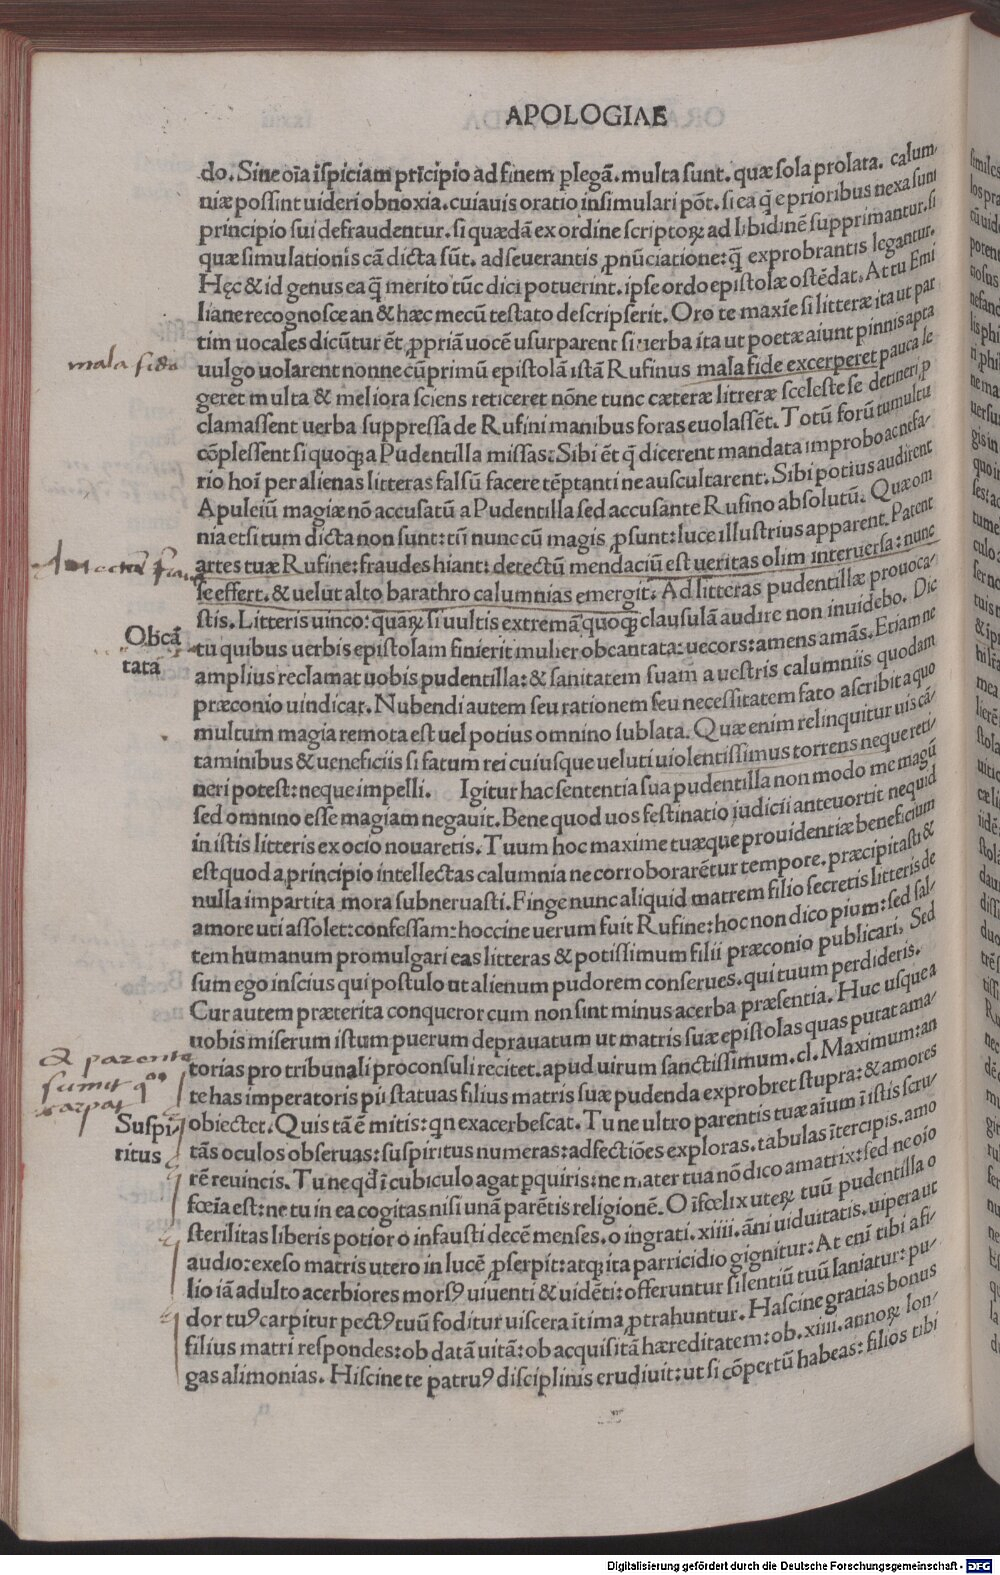 APOLOGIAE
do. Sine oĩa ĩspiciam prĩcipio ad finem ꝑlegã. multa sunt. quæ sola prolata. calum-
niæ possint uideri obnoxia. cuiauis oratio insimulari põt. si ea q̃ e prioribus nexa sunt
principio sui defraudentur. si quædã ex ordine scriptoꝝ ad libidinẽ supprimantur. si
quæ simulationis cã dicta sũt. adseuerantis ꝓnũciatione: q̃ exprobrantis legantur.
Hęc & id genus ea q̃ merito tũc dici potuerint. ipse ordo epistolæ ostẽdat. At tu Emi
liane recognosce an & hæc mecũ testato descripserit. Oro te maxĩe si litteræ ita ut par
tim uocales dicũtur ẽt ꝓpriã uocẽ usurparent si uerba ita ut poetæ aiunt pinnis apta
mala fide
uulgo uolarent nonne cũ primũ epistolã istã Rufinus mala fide excerperet pauca le
geret multa & meliora sciens reticeret nõne tunc cæteræ litteræ sceleste se detineri ꝓ
clamassent uerba suppressa de Rufini manibus foras euolassẽt. Totũ forũ tumultu
cõplessent si quoq; a Pudentilla missas: Sibi ẽt q̃ dicerent mandata improbo ac nefa-
rio hoĩ per alienas litteras falsũ facere tẽptanti ne auscultarent. Sibi potius audirent
Apuleiũ magiæ nõ accusatũ a Pudentilla sed accusante Rufino absolutũ. Quæ om
nia etsi tum dicta non sunt: tũ nunc cũ magis ꝓsunt: luce illustrius apparent. Patent
artes tuæ Rufine: fraudes hiant: detectũ mendaciũ est ueritas olim interuersa: nunc
se effert. & uelut alto barathro calumnias emergit. Ad litteras pudentillæ prouoca-
stis. Litteris uinco: quaꝝ si uultis extremã quoq; clausulã audire non inuidebo. Dic
Obcã
tata
tu quibus uerbis epistolam finierit mulier obcantata: uecors: amens amãs. Etiam ne
amplius reclamat uobis pudentilla: & sanitatem suam a uestris calumniis quodam
præconio uindicat. Nubendi autem seu rationem seu necessitatem fato ascribit a quo
multum magia remota est uel potius omnino sublata. Quæ enim relinquitur uis cã-
taminibus & ueneficiis si fatum rei cuiusque ueluti uiolentissimus torrens neque reti-
neri potest: neque impelli. Igitur hac sententia sua pudentilla non modo me magũ
sed omnino esse magiam negauit. Bene quod uos festinatio iudicii anteuortit ne quid
in istis litteris ex ocio nouaretis. Tuum hoc maxime tuæque prouidentiæ beneficium
est quod a principio intellectas calumnia ne corroborarẽtur tempore. præcipitasti &
nulla impartita mora subneruasti. Finge nunc aliquid matrem filio secretis litteris de
amore uti assolet: confessam: hoccine uerum fuit Rufine: hoc non dico pium: sed sal-
tem humanum promulgari eas litteras & potissimum filii præconio publicari. Sed
sum ego inscius qui postulo ut alienum pudorem conserues. qui tuum perdideris.
Cur autem præterita conqueror cum non sint minus acerba præsentia. Huc usque a
uobis miserum istum puerum deprauatum ut matris suæ epistolas quas putat ama-
torias pro tribunali proconsuli recitet. apud uirum sanctissimum. cl. Maximum: an
te has imperatoris pii statuas filius matris suæ pudenda exprobret stupra: & amores
Suspi-
ritus
obiectet. Quis tã ẽ mitis: qn exacerbescat. Tu ne ultro parentis tuæ aium ĩ istis scru-
tãs oculos obseruas: suspiritus numeras: adfectiões exploras. tabulas ĩtercipis. amo
rẽ reuincis. Tu ne qd ĩ cubiculo agat ꝑquiris: ne mater tua nõ dico amatrix: sed ne oĩo
fœĩa est: ne tu in ea cogitas nisi unã parẽtis religionẽ. O ĩfœlix uteꝝ tuũ pudentilla o
sterilitas liberis potior o infausti decẽ menses. o ingrati. xiiii. ãni uiduitatis. uipera ut
audio: exeso matris utero in lucẽ ꝓserpit: atq; ita parricidio gignitur: At enĩ tibi a fi-
lio iã adulto acerbiores morsꝰ uiuenti & uidẽti: offeruntur silentiũ tuũ laniatur: pu-
dor tuꝰ carpitur pectꝰ tuũ foditur uiscera ĩtima ꝓtrahuntur. Hascine gratias bonus
filius matri respondes: ob datã uitã: ob acquisitã hæreditatem: ob. xiiii. annoꝝ lon-
gas alimonias. Hiscine te patruꝰ disciplinis erudiuit: ut si cõpertũ habeas: filios tibi
Digitalisierung gefördert durch die Deutsche Forschungsgemeinschaft - DFG